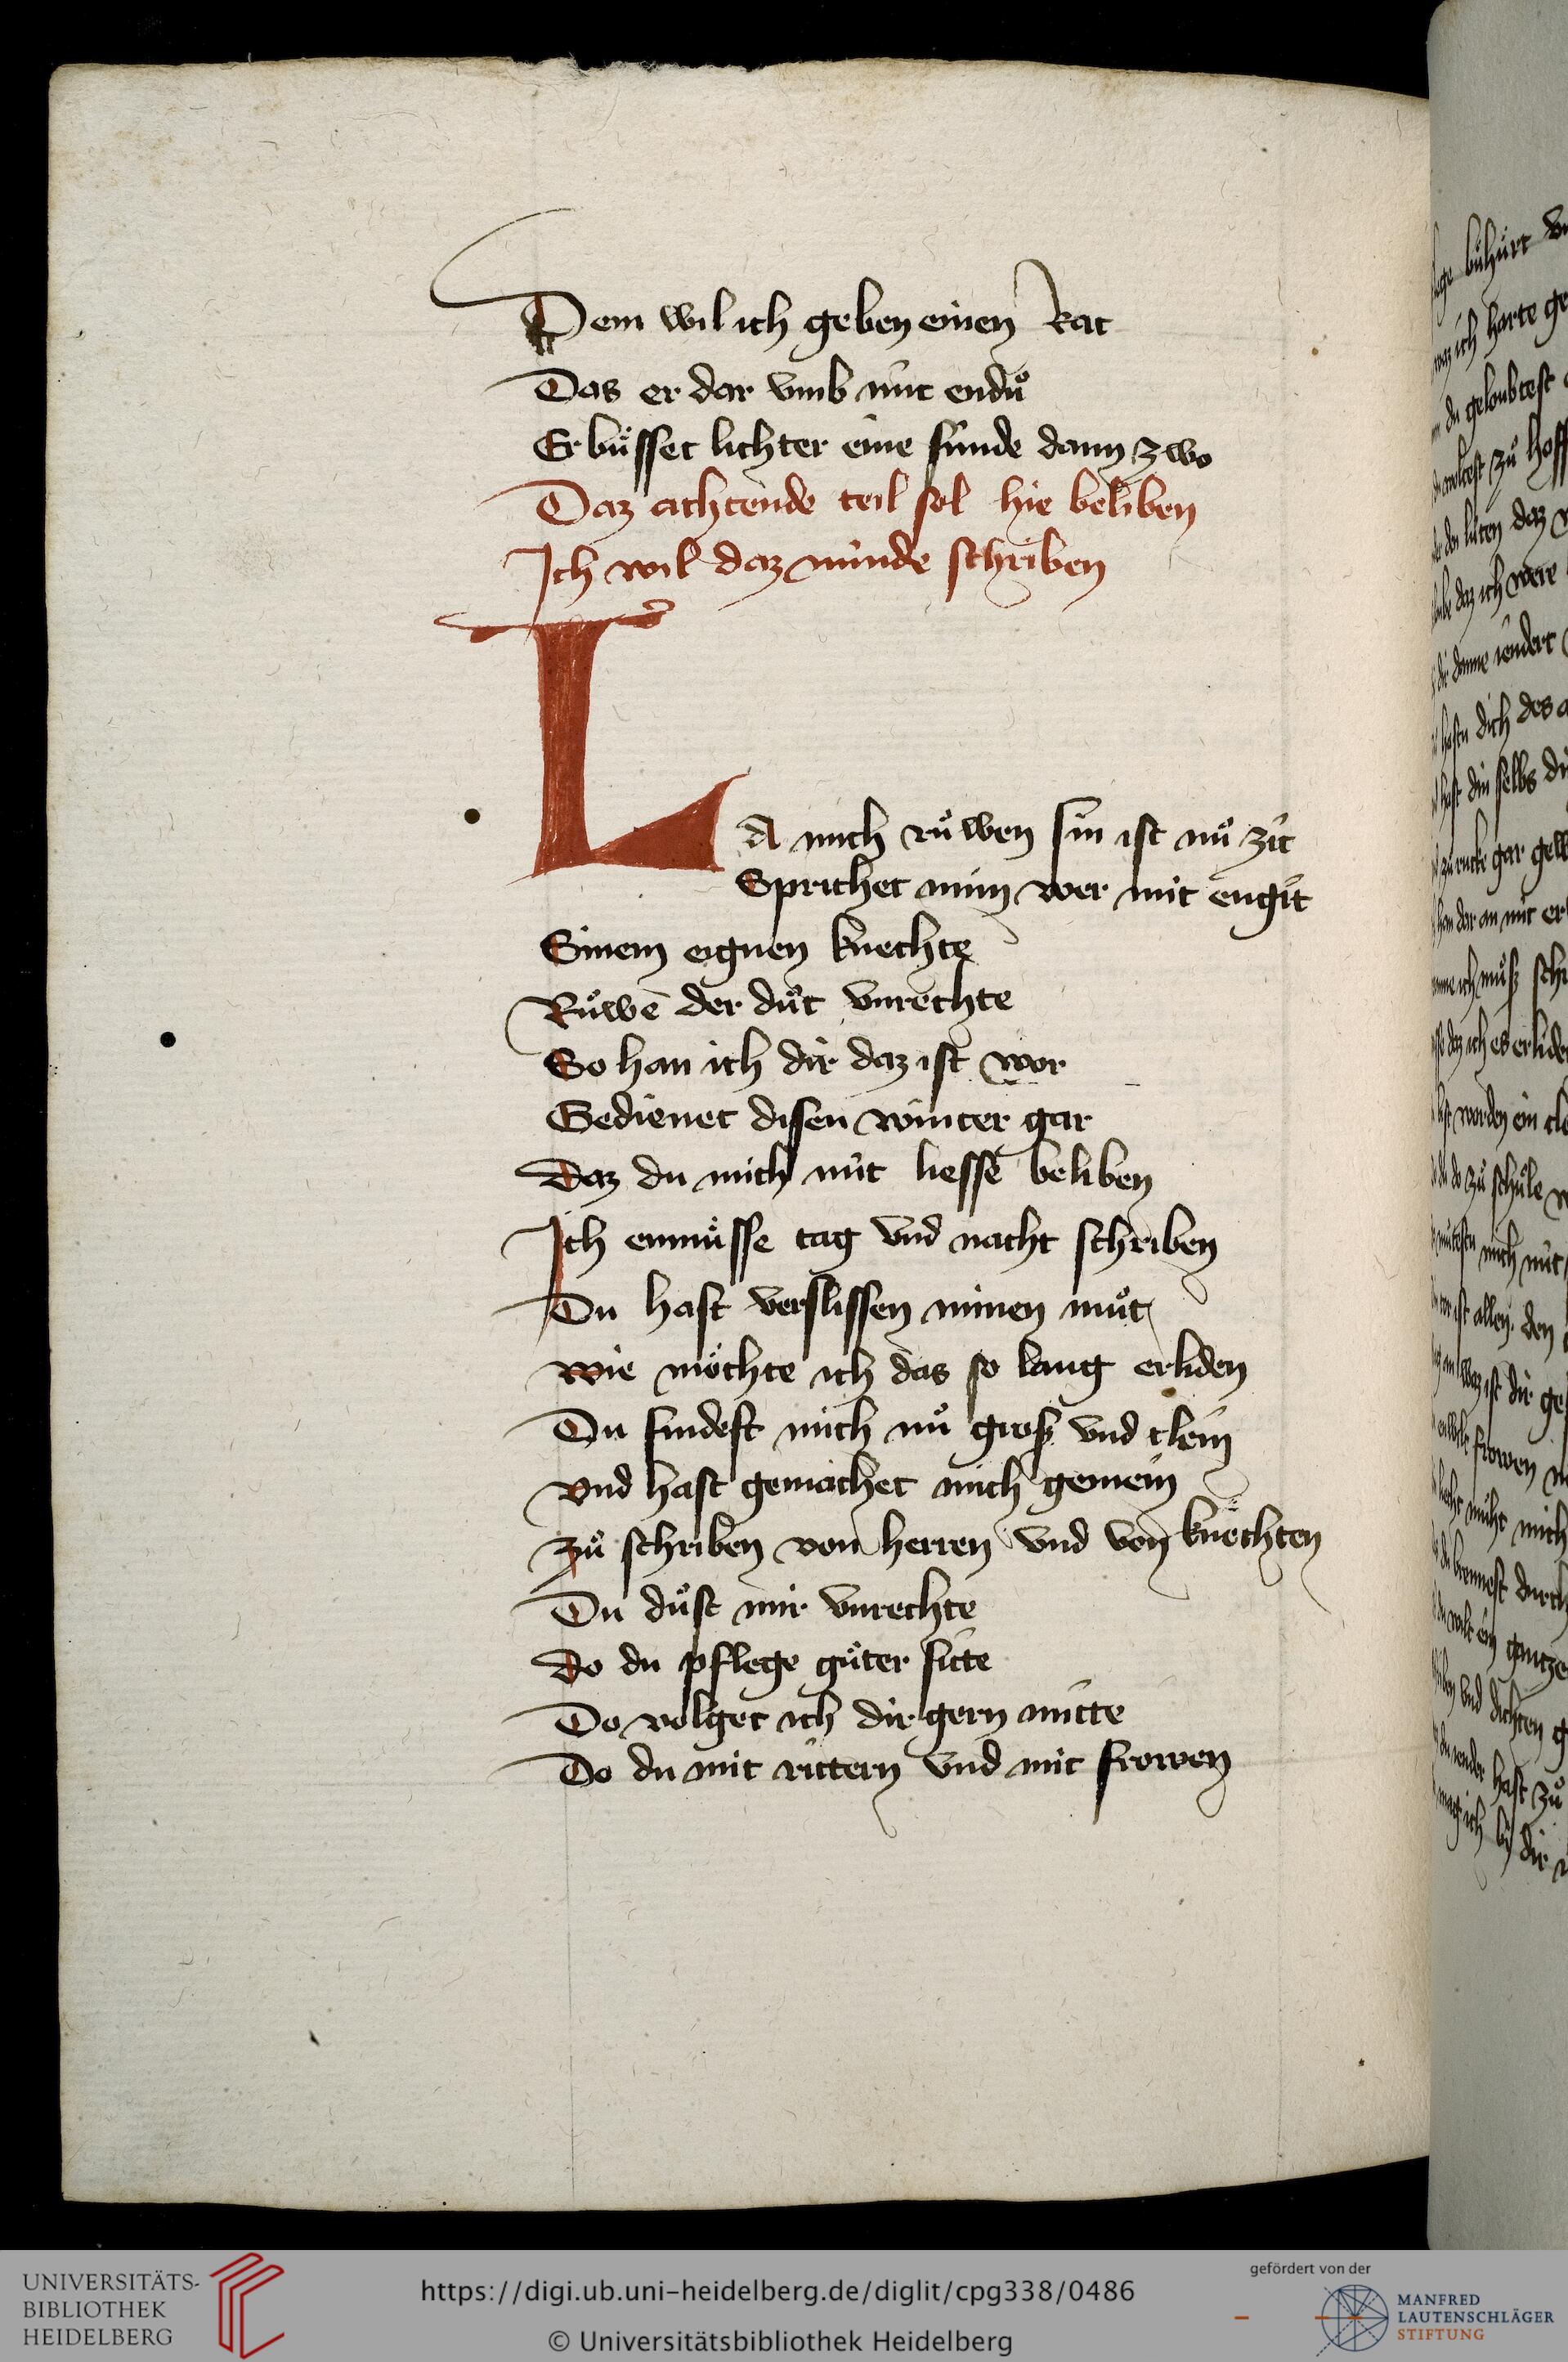 Dem wil ich geben einen Rat
Das er dar vmb nit enduͦ
Er buͤsset lichter eine sunde dann zwo
Daz achtende teil sol hie beliben
Ich wil daz nunde schriben
LA mich ruͦwen sin ist nuͦ zit
Sprichet min wer mit engit
Sinem eignen knechte
Ruͦwe der duͦt vnrechte
So han ich dir daz ist wor
Gedienet disen winter gar
Daz du mich nit liesse beliben
Ich enmuͤsse tag vnd nacht schriben
Du hast verslissen minen muͦt
wie moͤchte ich das so lang erliden
Du findest mich nuͦ gros vnd clein
vnd hast gemachet mich gemein
zuͦ schriben von herren vnd von knechten
Du duͦst mir vnrechte
do du pflege guͦter sitte
Do volget ich dir gern mitte
Do du mit rittern vnd mit frowen
UNIVERSITÄTS-
BIBLIOTHEK
HEIDELBERG
https://digi.ub.uni-heidelberg.de/diglit/cpg338/0486
© Universitätsbibliothek Heidelberg
gefördert von der
MANFRED
LAUTENSCHLÄGER
STIFTUNG